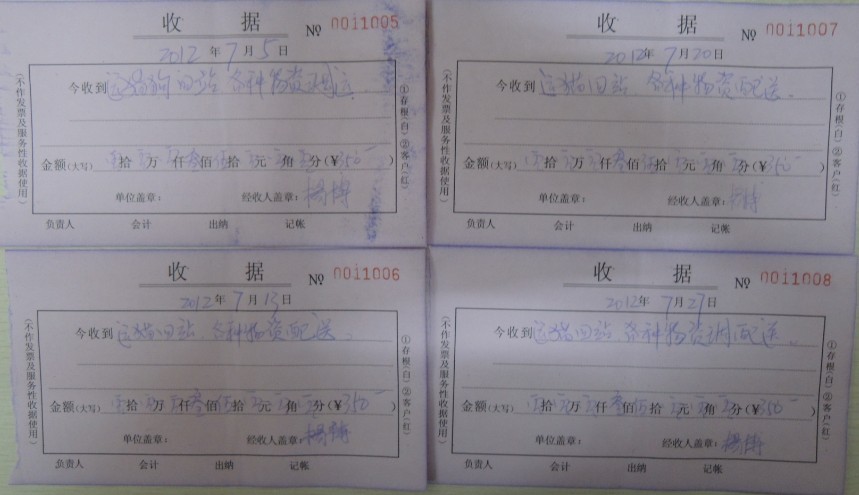 收 据 № 0011005
2012 年 7 月 5 日
今收到 运猫狗回站 各种物资调运
金额(大写) 拾 万 仟 叁 佰 伍 拾 元 角 分(￥350 )
单位盖章： 经收人盖章： 杨博
负责人 会计 出纳 记帐
(不作发票及服务性收据使用)
①存根(白)②客户(红)
收 据 № 0011007
2012 年 7 月 20 日
今收到 运猫回站、各种物资配送、
金额(大写) 拾 万 仟 叁 佰 伍 拾 元 角 分(￥350 )
单位盖章： 经收人盖章： 杨博
负责人 会计 出纳 记帐
(不作发票及服务性收据使用)
①存根(白)②客户(红)
收 据 № 0011006
2012 年 7 月 13 日
今收到 运猫回站、各种物资配送、
金额(大写) 拾 万 仟 叁 佰 伍 拾 元 角 分(￥350 )
单位盖章： 经收人盖章： 杨博
负责人 会计 出纳 记帐
(不作发票及服务性收据使用)
①存根(白)②客户(红)
收 据 № 0011008
2012 年 7 月 27 日
今收到 运猫回站、各种物资调配送、
金额(大写) 拾 万 仟 叁 佰 伍 拾 元 角 分(￥350 )
单位盖章： 经收人盖章： 杨博
负责人 会计 出纳 记帐
(不作发票及服务性收据使用)
①存根(白)②客户(红)